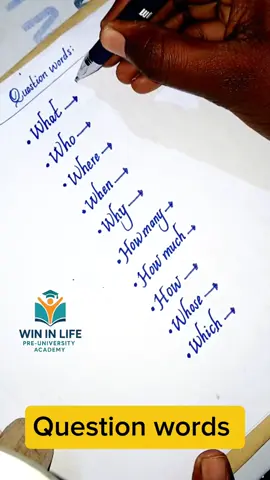 Question words:
• What →
• Who →
• Where →
• When →
• Why →
• How many →
• How much →
• How →
• Whase →
• Which →
WIN IN LIFE
PRE-UNIVERSITY
ACADEMY
Question words